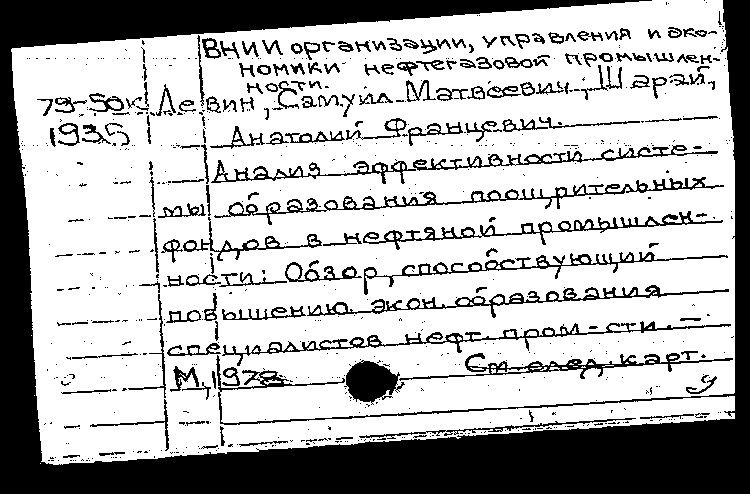 ВНИИ организации, управления и эко-
номики нефтегазовой промышлен-
ности.
79-50к Левин, Самуил Матвеевич; Шарай,
1935 Анатолий Францевич.
Анализ эффективности систе-
мы образования поощрительных
фондов в нефтяной промышлен-
ности: Обзор, способствующий
повышению экон. образования
специалистов нефт. пром-сти. —
М., 1978 См. след. карт.